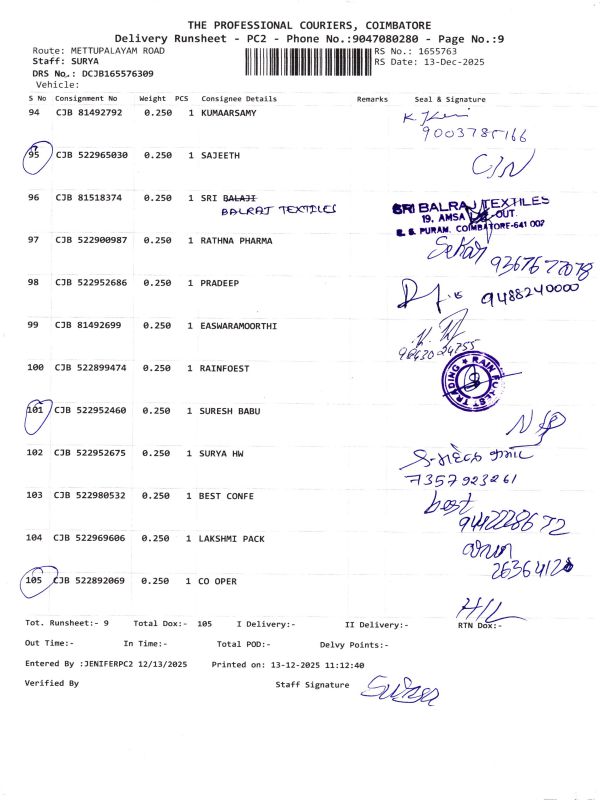 THE PROFESSIONAL COURIERS, COIMBATORE
Delivery Runsheet - PC2 - Phone No.:9047080280 - Page No.:9
Route: METTUPALAYAM ROAD RS No.: 1655763
Staff: SURYA RS Date: 13-Dec-2025
DRS No.: DCJB165576309
Vehicle:
S No Consignment No Weight PCS Consignee Details Remarks Seal & Signature
94 CJB 81492792 0.250 1 KUMAARSAMY
9003785166
95 CJB 522965030 0.250 1 SAJEETH
96 CJB 81518374 0.250 1 SRI BALAJI
BALRAJ TEXTILES
SRI BALRAJ TEXTILES
19, AMSA OUT.
R. S. PURAM, COIMBATORE-641 002
97 CJB 522900987 0.250 1 RATHNA PHARMA Sekar
98 CJB 522952686 0.250 1 PRADEEP 9488240000
99 CJB 81492699 0.250 1 EASWARAMOORTHI
100 CJB 522899474 0.250 1 RAINFOEST
RAIN FOREST TRADING
101 CJB 522952460 0.250 1 SURESH BABU
102 CJB 522952675 0.250 1 SURYA HW
7357923261
103 CJB 522980532 0.250 1 BEST CONFE best
104 CJB 522969606 0.250 1 LAKSHMI PACK
105 CJB 522892069 0.250 1 CO OPER
Tot. Runsheet:- 9 Total Dox:- 105 I Delivery:- II Delivery:- RTN Dox:-
Out Time:- In Time:- Total POD:- Delvy Points:-
Entered By :JENIFERPC2 12/13/2025 Printed on: 13-12-2025 11:12:40
Verified By Staff Signature Surya